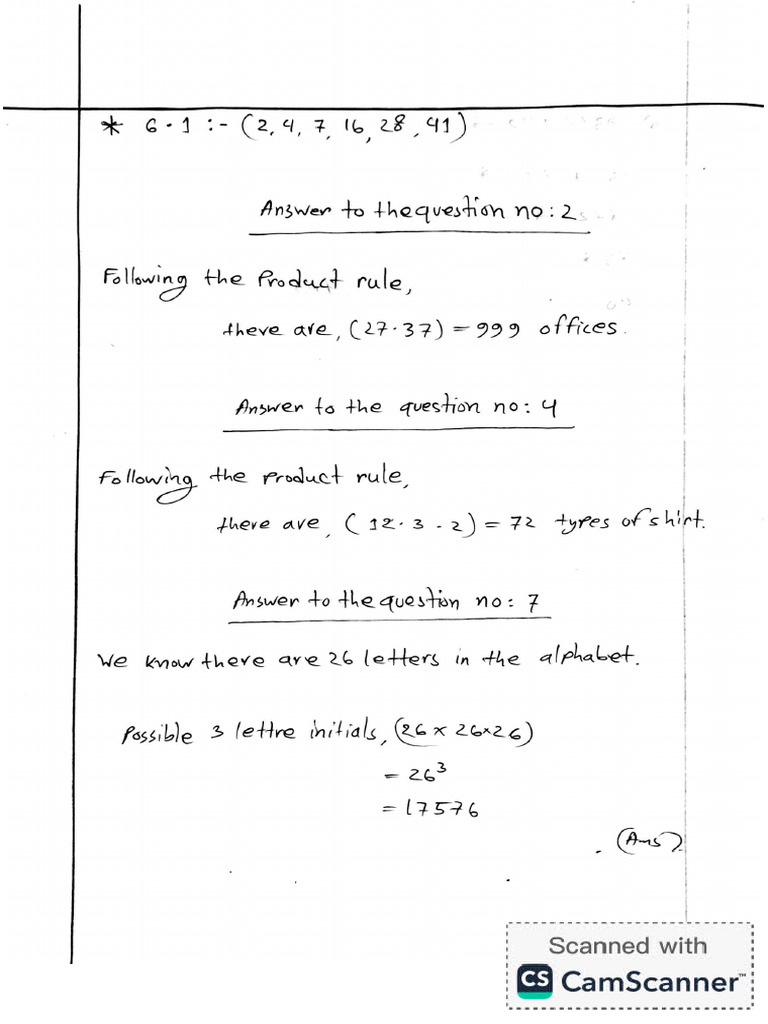 * 6.1 :- (2, 4, 7, 16, 28, 41)
Answer to the question no: 2
Following the Product rule,
there are, (27.37) = 999 offices.
Answer to the question no: 4
Following the Product rule,
there are, (12.3.2) = 72 types of shirt.
Answer to the question no: 7
We know there are 26 letters in the alphabet.
Possible 3 lettre initials, (26 × 26×26)
= 26³
= 17576
(Ans)
Scanned with
CS CamScanner™